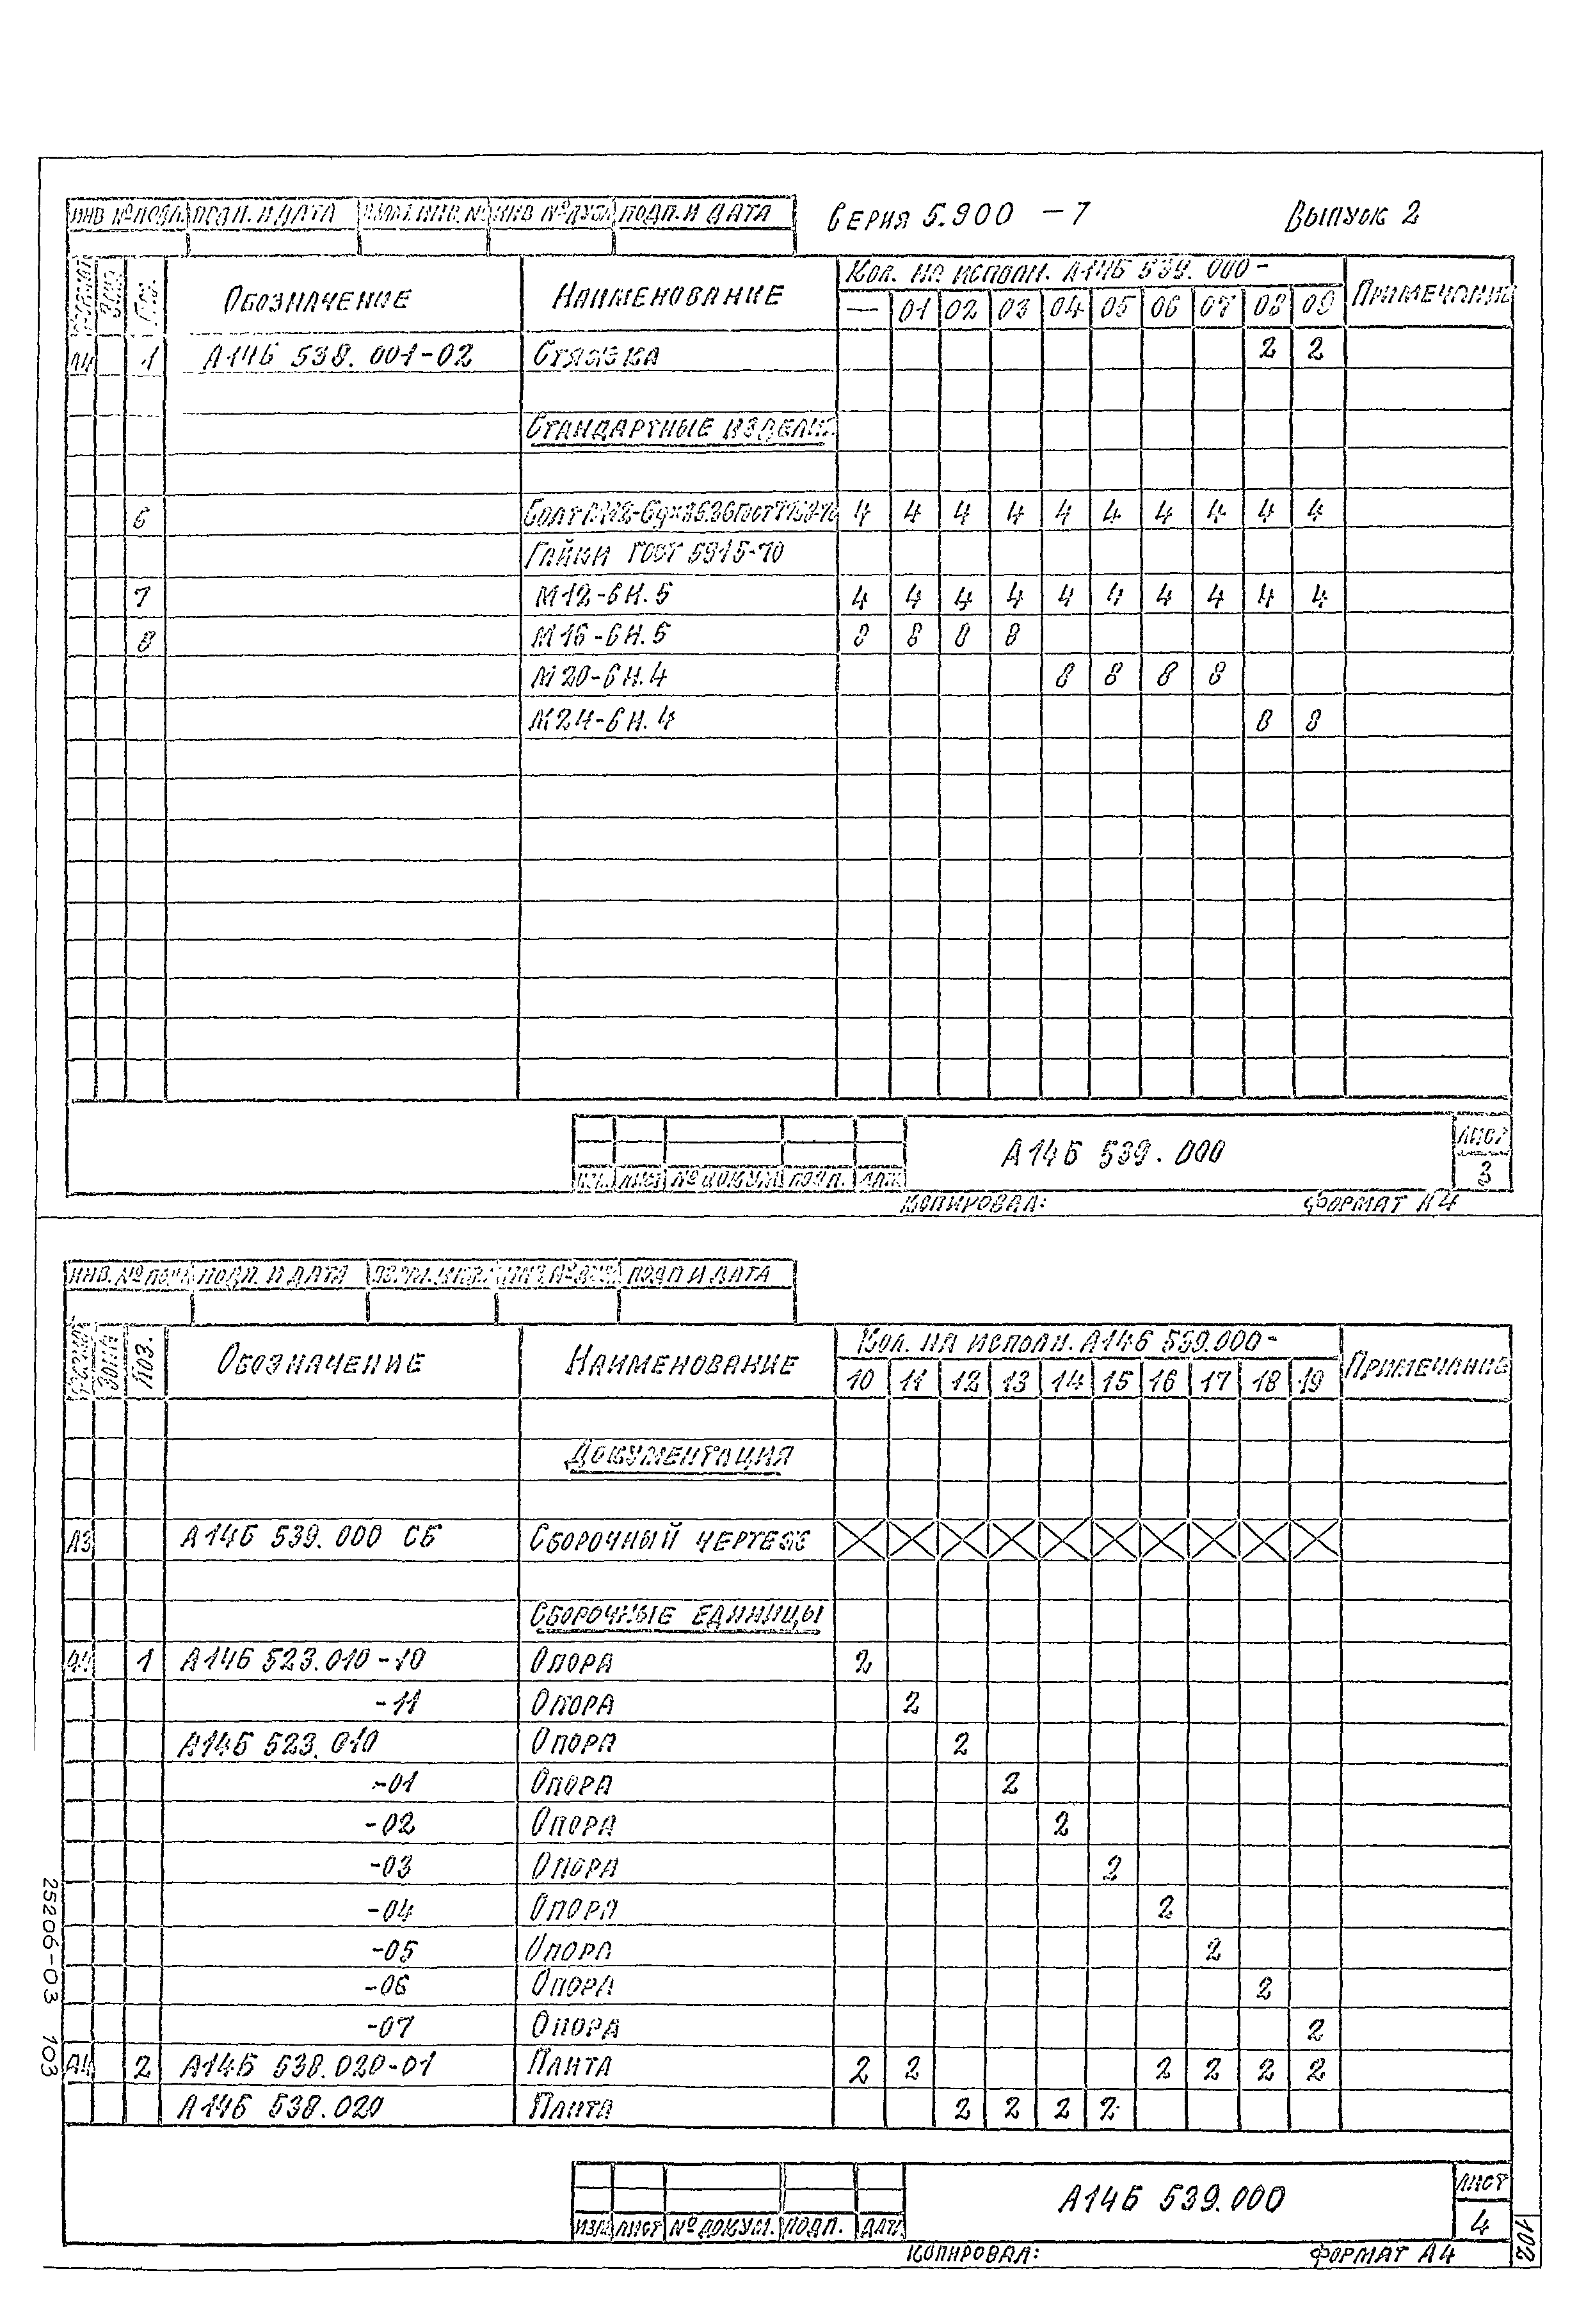 ИНВ № ПОДЛ. ПОДП. И ДАТА ВЗАМ. ИНВ. № ИНВ № ДУБЛ. ПОДП. И ДАТА СЕРИЯ 5.900 - 7 ВЫПУСК 2
ФОРМАТ ЗОНА ПОЗ. ОБОЗНАЧЕНИЕ НАИМЕНОВАНИЕ КОЛ. НА ИСПОЛН. А14Б 539.000- ПРИМЕЧАНИЕ
— 01 02 03 04 05 06 07 08 09
А4 1 А14Б 538.001-02 СТЯЖКА 2 2
СТАНДАРТНЫЕ ИЗДЕЛИЯ
6 БОЛТ М12-6g×35.36 ГОСТ 7798-70 4 4 4 4 4 4 4 4 4 4
ГАЙКИ ГОСТ 5915-70
7 М12-6Н.5 4 4 4 4 4 4 4 4 4 4
8 М16-6Н.5 8 8 8 8
М20-6Н.4 8 8 8 8
М24-6Н.4 8 8
А14Б 539.000 ЛИСТ
3
ИЗМ. ЛИСТ № ДОКУМ. ПОДП. ДАТА
КОПИРОВАЛ: ФОРМАТ А4
ИНВ. № ПОДЛ. ПОДП. И ДАТА ВЗАМ. ИНВ. № ИНВ. № ДУБЛ. ПОДП И ДАТА
ФОРМАТ ЗОНА ПОЗ. ОБОЗНАЧЕНИЕ НАИМЕНОВАНИЕ КОЛ. НА ИСПОЛН. А14Б 539.000- ПРИМЕЧАНИЕ
10 11 12 13 14 15 16 17 18 19
ДОКУМЕНТАЦИЯ
А3 А14Б 539.000 СБ СБОРОЧНЫЙ ЧЕРТЕЖ
СБОРОЧНЫЕ ЕДИНИЦЫ
А4 1 А14Б 523.010-10 ОПОРА 2
-11 ОПОРА 2
А14Б 523.010 ОПОРА 2
-01 ОПОРА 2
-02 ОПОРА 2
-03 ОПОРА 2
-04 ОПОРА 2
-05 ОПОРА 2
-06 ОПОРА 2
-07 ОПОРА 2
А4 2 А14Б 538.020-01 ПЛИТА 2 2 2 2 2 2
А14Б 538.020 ПЛИТА 2 2 2 2
А14Б 539.000 ЛИСТ
4
ИЗМ ЛИСТ № ДОКУМ. ПОДП. ДАТА
КОПИРОВАЛ: ФОРМАТ А4
25206-03 103
102